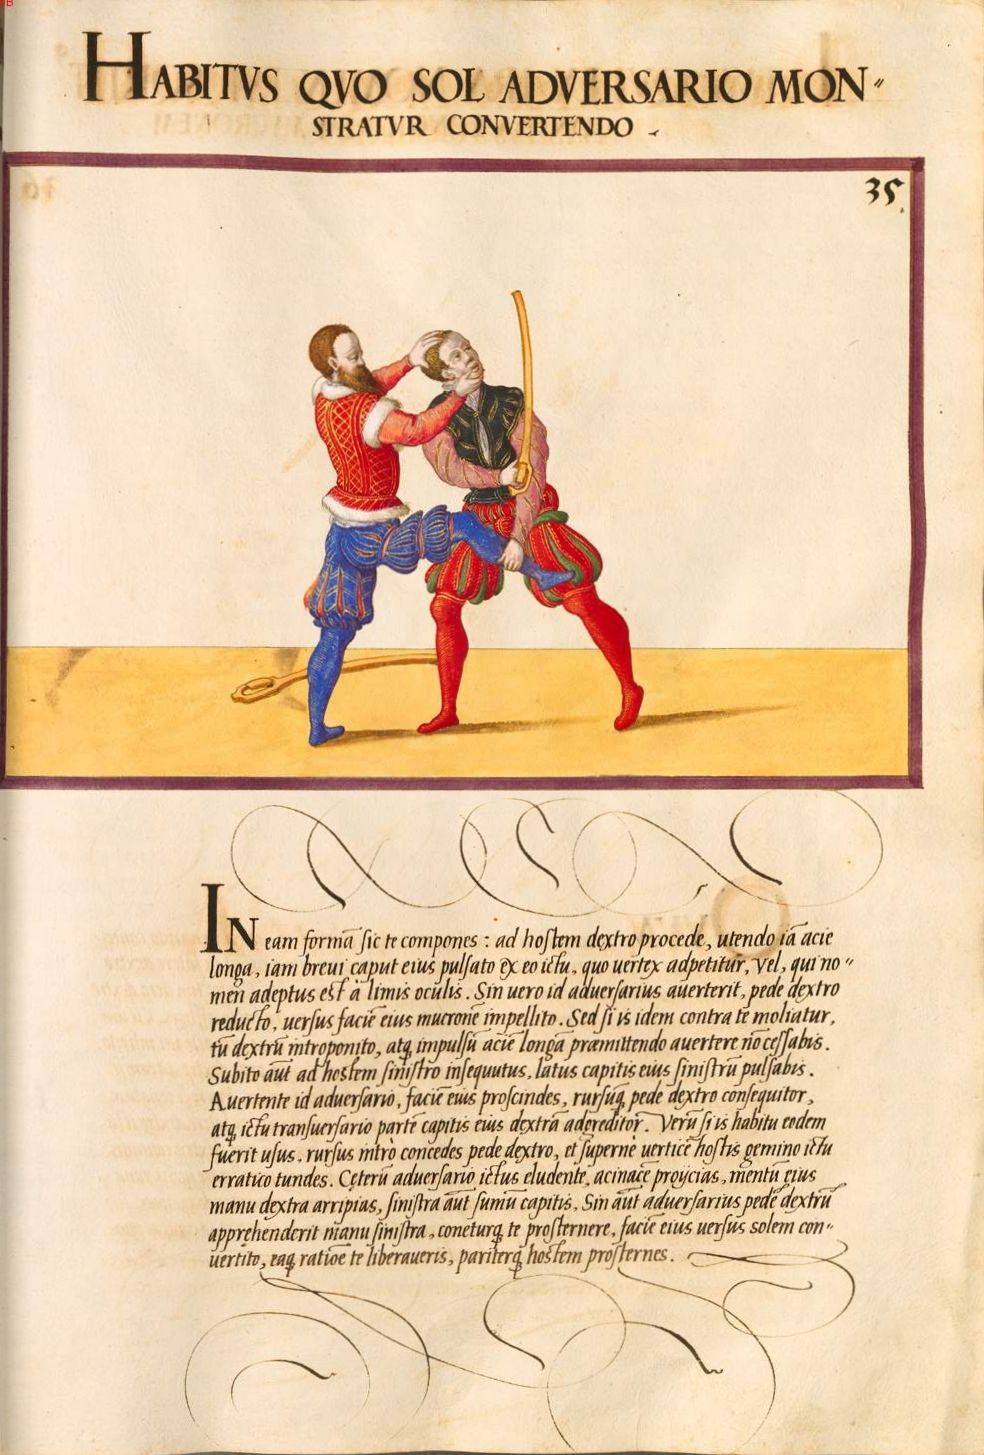 HABITVS QVO SOL ADVERSARIO MON〃
STRATVR CONVERTENDO.
35.
IN eam formā sic te compones : ad hostem dextro procede, utendo iā acie
longa, iam brevi caput eius pulsato ex eo ictu, quo vertex adpetitur, vel, qui no〃
men adeptus est à limis oculis. Sin uero id aduersarius auerterit, pede dextro
reducto, uersus faciē eius mucronē impellito. Sed si is idem contra te moliatur,
tū dextrū introponito, atq; impulsū acie longa præmittendo auertere nō cessabis.
Subito aūt ad hostem sinistro insequutus, latus capitis eius sinistrū pulsabis.
Auertente id aduersario, faciē eius proscindes, rursuq; pede dextro consequitor,
atq; ictu transuersario partē capitis eius dextrā adgreditor. Verū si is habitu eodem
fuerit usus, rursus intrò concedes pede dextro, et supernè uerticē hostis gemino ictu
erratico tundes. Ceterū aduersario ictus eludente, acinacē proijcias, mentū eius
manu dextra arripias, sinistra aūt sumū capitis, Sin aūt aduersarius pedē dextrū
apprehenderit manu sinistra, coneturq; te prosternere, faciē eius uersus solem con〃
uertito, eaq; ratiōe te liberaueris, pariterq; hostem prosternes.